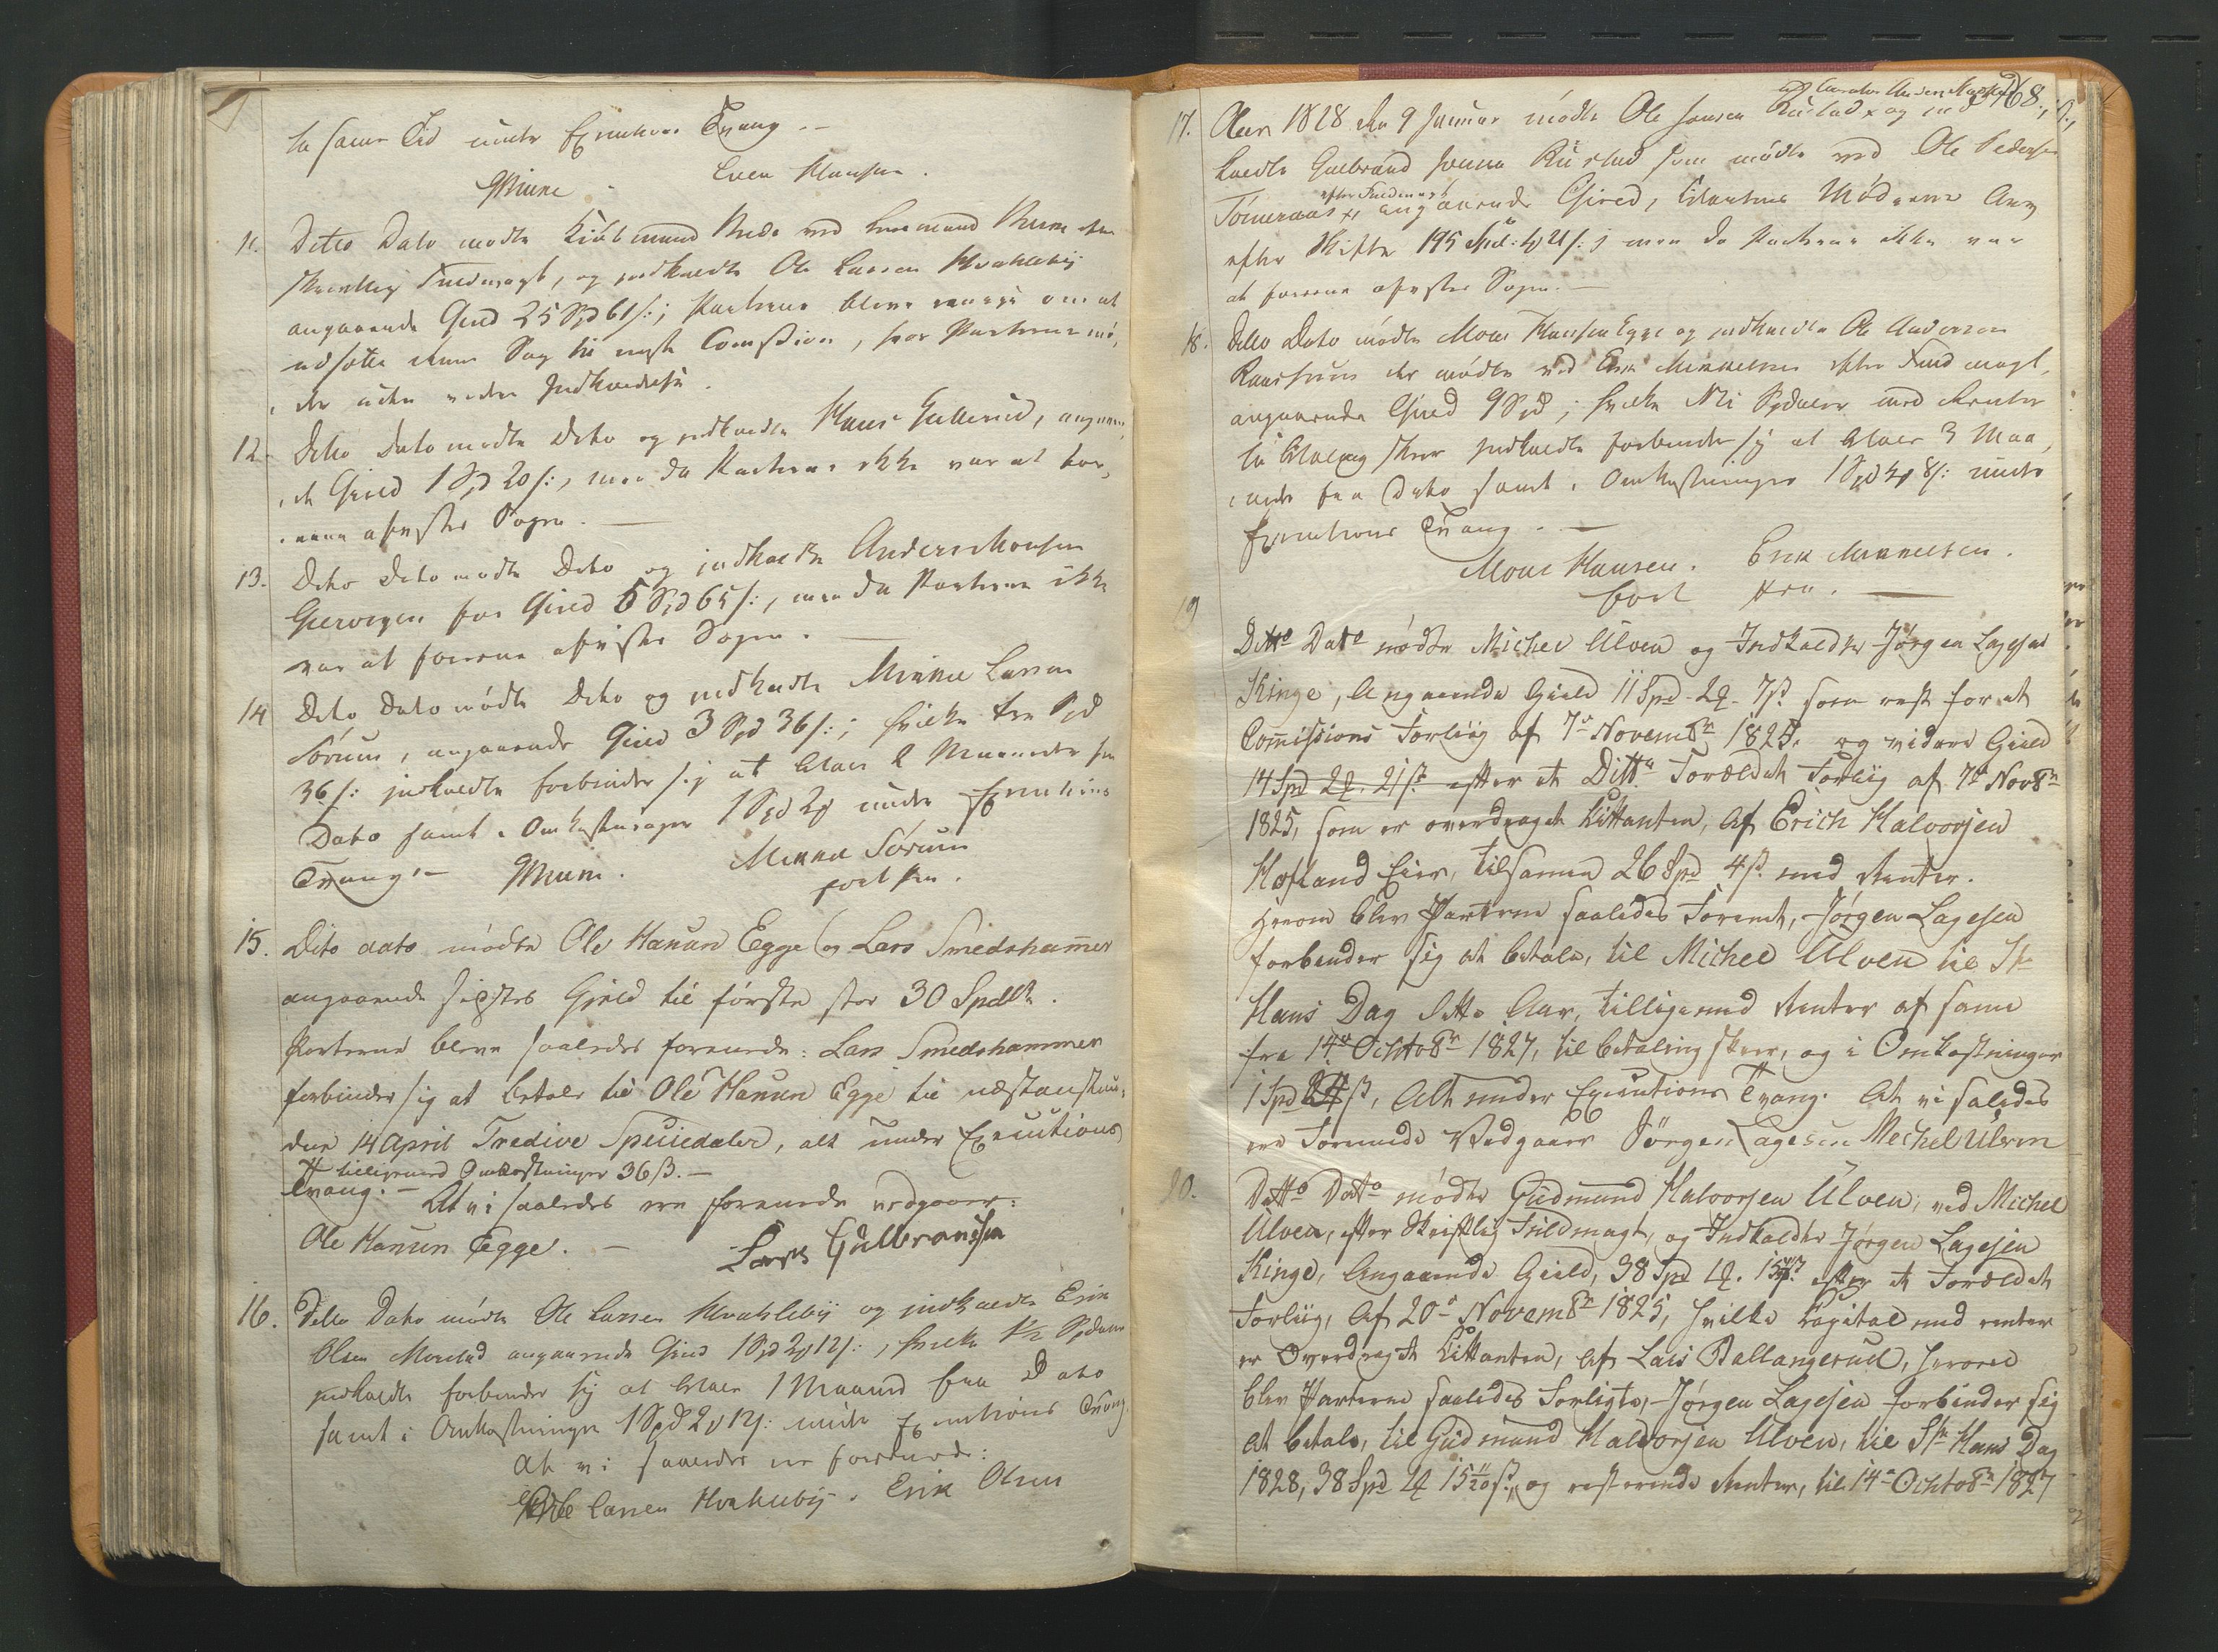 to samme Tid under Executions Tvang. -
Even Hansen.
GMune
11. Ditto Dato mødte Kiøbmand ved Mune efter
skrevtlig Fuldmagt, og indkaldte Ole Larsen Hvahleby
angaaende Gield 25 Spd 61 s:; Parterne bleve eenige om at
udsætte denne Sag til neste Comission, hvor Parterne mø-
der uden videre Indkaldelse.
12. Ditto Dato mødte Dito og indkaldte Hans Gullerud, angaaen-
de Gield 1 Spd 20 s:, men da Parterne ikke var at for-
ene afvistes Sagen. —
13. Dito Dato mødte Dito og indkaldte Anders Hansen
for Gield 5 Spd 65 s:, men da Parterne ikke
var at forene afvistes Sagen. —
14 Dito Dato mødte Dito og indkaldte Minne Larsen
Sørum, angaaende Gield 3 Spd 36 s:; hvilke tre Spd
36 s: indkaldte forbinder sig at betale 2 Maaneder fra
Dato samt i Omkostninger 1 Spd 2 under Executions
Tvang. — GMune. Minne Sørum
ført Pen.
15. Dito dato mødte Ole Hansen Egge og Lars Smedshammer
angaaende sidstes Gield til første stor 30 Spdlr.
Parterne bleve saaledes forenede: Lars Smedshammer
forbinder sig at betale til Ole Hansen Egge til næstansten-
den 14 April Tredive Speciedaler, alt under Executions
# tilligemed Omkostninger 36 ß. —
Tvang. — At vi saaledes ere forenede vedgaaer:
Ole Hansen Egge. — Lars Gulbrandsen
16. Ditto Dato mødte Ole Larsen Hvahleby og indkaldte Erik
Olsen angaaende Gield 1 Spd 2 12 s:, hvilke Spdaler
indkaldte forbinder sig at betale 1 Maaned fra Dato
samt i Omkostninger 1 Spd 2 12 s: under Executions Tvang.
At vi saaledes ere forenede:
Ole Larsen Hvahleby. Erik Olsen
168.
17. Aar 1828 den 9 Januar mødte Ole Jensen Rustad og ind-
kaldte Gulbrand Jensen Rustad som mødte ved Ole Pedersen
efter Fuldmagt
Tømeraas angaaende Gield, Mødrene Arv
efter Skifte 195 Spd: 21 s:; men da Parterne ikke var
at forene afvistes Sagen. —
18. Ditto Dato mødte Mons Hansen Egge og indkaldte Ole Andersen
der mødte ved Erik Mikkelsen efter Fuldmagt,
angaaende Gield 9 Spd; hvilke Ni Spdaler med Renter
til Betaling skeer indkaldte forbinder sig at betale 3 Maa-
neder fra Dato samt i Omkostninger 1 Spd 8 s: under
Executions Tvang. —
Mons Hansen. Erik Mikkelsen.
ført Pen. —
19 Ditto Dato mødte Michel Ulven og Indkaldte Jørgen Lagesen
Kinge, Angaaende Gield 11 Spd. 2. 7 ß som rest for et
Comissions Forliig af 7de Novembr 1825, og videre Gield
14 Spd 2. 21 ß efter et Ditto Foreldet Forliig af 7de Novbr
1825, som er overdraget Citanten, af Erich Halvorsen
Hofland Eier, tilsamen 26 Spd 4 ß med Renter.
Herom blev Parterne saaledes Forenet, Jørgen Lagesen
forbinder sig at betale, til Michel Ulven til St
Hans Dag dette Aar, tilligemed Renter af samme
fra 14de Octobr 1827, til betaling skeer, og i Omkostninger
1 Spd 24 ß, Alt under Executions Tvang. At vi saledes
ere Forenede Vedgaaer Jörgen Lagesen Mechel Ulven
20. Ditto Dato mødte Gudmund Halvorsen Ulven, ved Michel
Ulven, efter Skriftlig Fuldmagt, og Indkaldte Jørgen Lagesen
Kinge, Angaaende Gield, 38 Spd. 15 ß efter et Foreldet
Forliig, af 20de Novembr 1825, hvilke Capital med renter
er Overdraget Citanten, af Lars Ballangerud, herom
blev Parterne saaledes Forligte, Jørgen Lagesen forbinder sig
at betale, til Gudmund Halvorsen Ulven, til St Hans Dag
1828, 38 Spd 15 11/20 ß, og resterende Renter, til 14de Octobr 1827